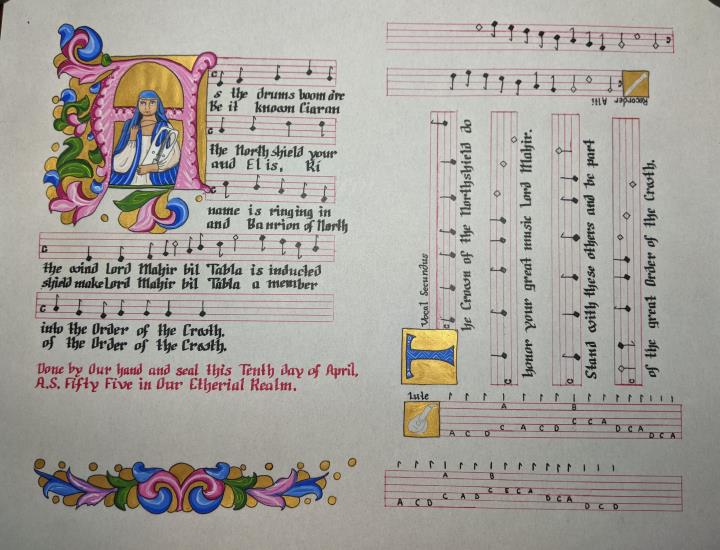 s the drums boom are
Be it known Ciaran
the Northshield your
and Elis, Rí
name is ringing in
and Banrion of North
the wind Lord Mahir bil Tabla is inducted
shield make Lord Mahir bil Tabla a member
into the Order of the Crwth.
of the Order of the Crwth.
Done by Our hand and seal this Tenth day of April,
A.S. Fifty Five in Our Etherial Realm.
Recorder Alti
Vocal Secundus
T
he Crown of the Northshield do
honor your great music Lord Mahir.
Stand with these others and be part
of the great Order of the Crwth.
Lute
A
B
A C D C A C D C C A D C A D C A
A
B
A C D C A D C E C A D C A D C D